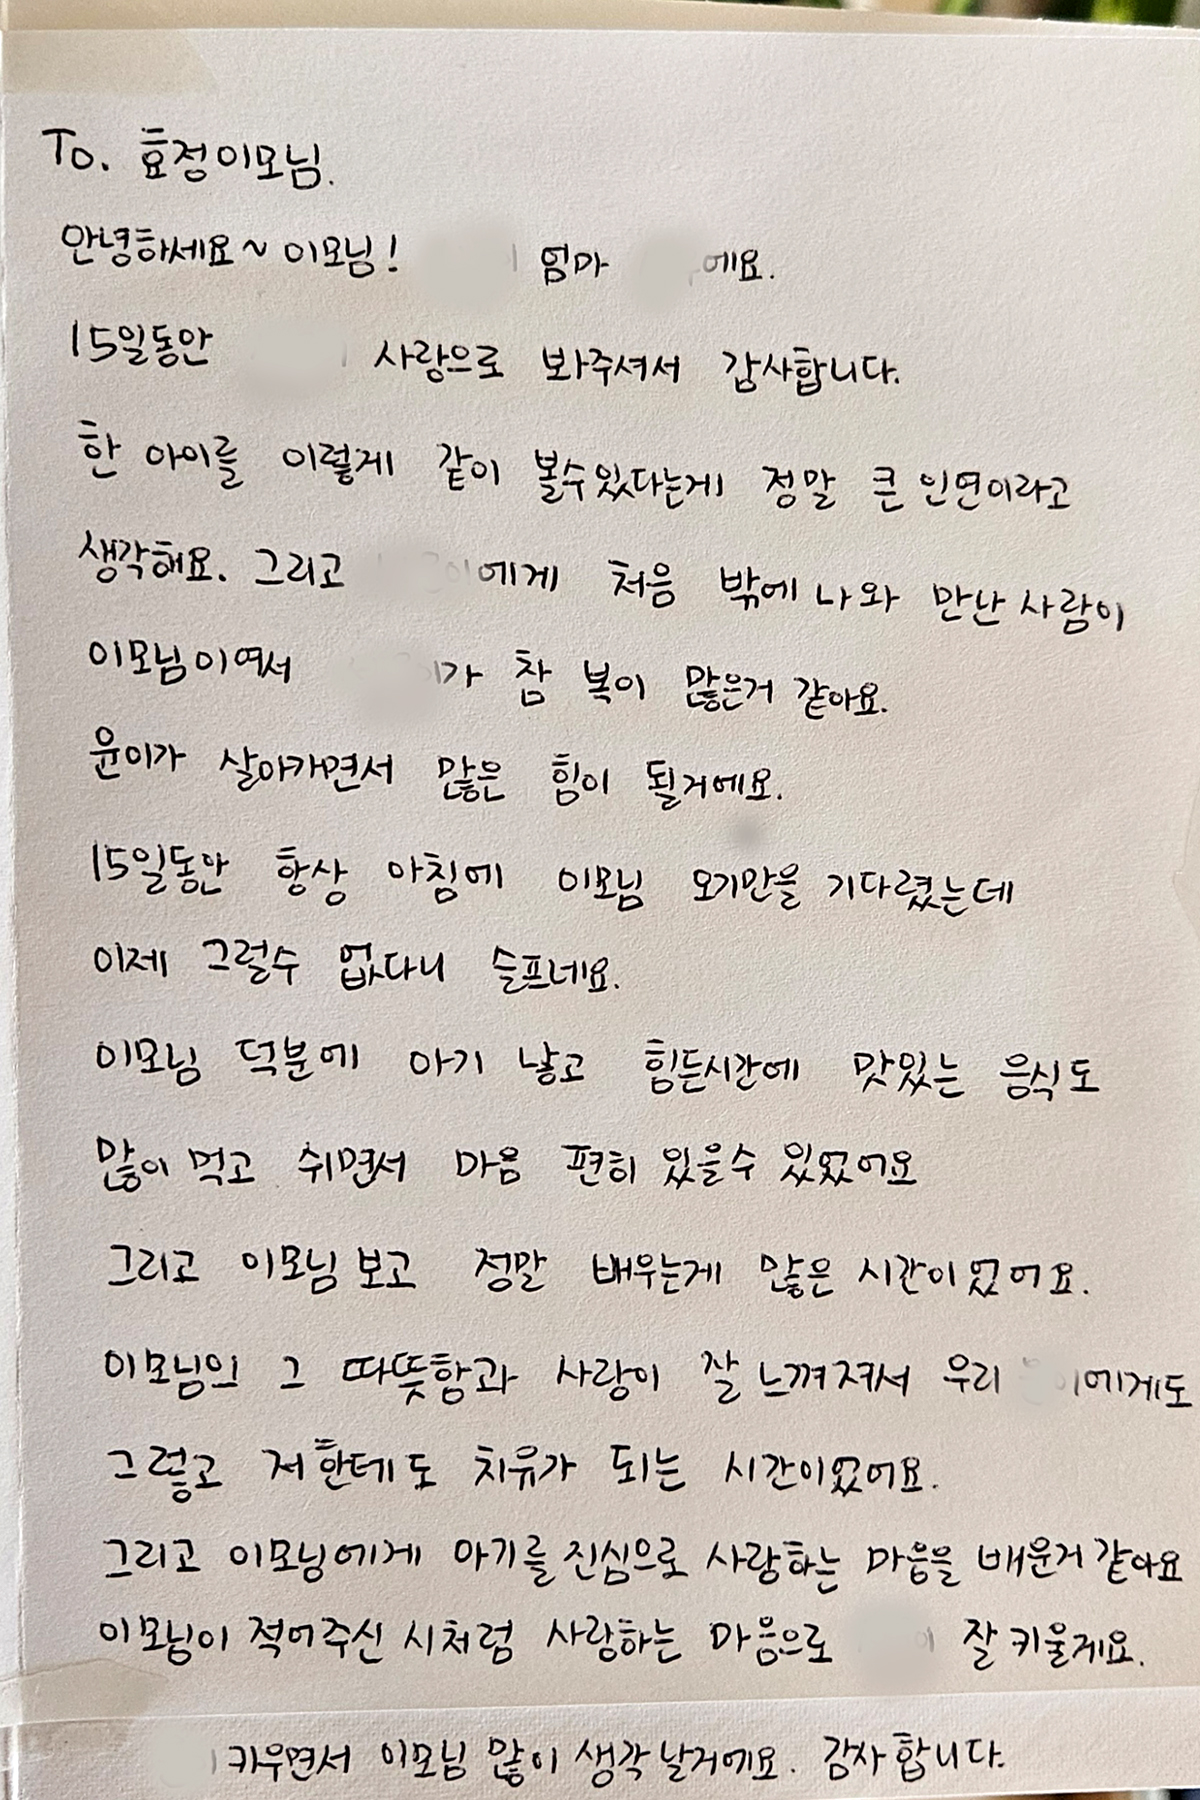 To. 효정이모님.
안녕하세요~ 이모님! 엄마 에요.
15일동안 사랑으로 봐주셔서 감사합니다.
한 아이를 이렇게 같이 볼수있다는게 정말 큰 인연이라고
생각해요. 그리고 에게 처음 밖에 나와 만난 사람이
이모님이여서 가 참 복이 많은거 같아요.
윤이가 살아가면서 많은 힘이 될거에요.
15일동안 항상 아침에 이모님 오기만을 기다렸는데
이제 그럴수 없다니 슬프네요.
이모님 덕분에 아기 낳고 힘든시간에 맛있는 음식도
많이 먹고 쉬면서 마음 편히 있을수 있었어요
그리고 이모님 보고 정말 배우는게 많은 시간이었어요.
이모님의 그 따뜻함과 사랑이 잘 느껴져서 우리 이에게도
그렇고 저한테도 치유가 되는 시간이었어요.
그리고 이모님에게 아기를 진심으로 사랑하는 마음을 배운거 같아요
이모님이 적어주신 시처럼 사랑하는 마음으로 이 잘 키울게요.
키우면서 이모님 많이 생각날거에요. 감사합니다.